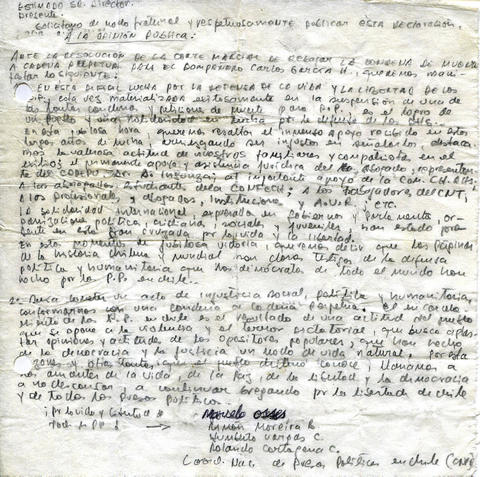 ESTIMADO SR. DIRECTOR.
Presente.
Solicitamos de modo fraternal y respetuosamente publicar esta declaración.
A LA OPINIÓN PÚBLICA:
ANTE LA RESOLUCIÓN DE LA CORTE MARCIAL DE REBAJAR LA CONDENA DE MUERTE
A CADENA PERPETUA PARA EL COMPAÑERO CARLOS GARCÍA H., queremos mani-
festar lo siguiente:
EN ESTA lucha POR LA DEFENSA DE LA VIDA Y LA LIBERTAD DE LOS
P.P. y esta vez materializada exitosamente en la suspensión de una de
las tantas condenas y peticiones de muerte para P.P. es el logro de
un pueblo y una solidaridad en lucha por la defensa de los
En esta hora queremos resaltar el inmenso apoyo recibido en estos
largos años de lucha, injustos en señalarlos, destaca-
mos la valerosa actitud de nuestros familiares y compatriotas en el
exilio; el permanente apoyo y asistencia jurídica del abogado, represen-
te del CODEPU Sr. al importante apoyo de la Com. CH. D.H.
A los Estudiantes de la CONFECH; A los Trabajadores del CNT,
A los profesionales, y abogados, Instituciones y A.U.R., ETC.
La solidaridad internacional, expresada en Gobiernos y Parlamentos, or-
ganizaciones políticas, sociales y juveniles, han estado pre-
sente en esta gran cruzada por la vida y la libertad.
En estos momentos de jubilosa victoria, queremos decir que las páginas
de la historia chilena y mundial son claros testigos de la defensa
política y humanitaria que los demócratas de todo el mundo han
hecho por los P.P. en chile.
2.- un acto de injusticia social, política y humanitaria,
conformarnos con una condena a cadena perpetua. El encarcela-
miento de los P.P. en chile es el resultado de una actitud del pueblo
que se opone a la violencia y el terror dictatorial, que busca aplas-
tar opiniones y actitudes de los opositores populares, que han hecho
de la democracia y la justicia un modo de vida natural, por esta
razón y otras tantas, que el mundo conoce, llamamos a
los amantes de la vida, de la Paz, de la libertad y la democracia
a no descansar a continuar bregando por la libertad de chile
y de todos los presos políticos.
¡por la vida y libertad
todos P.P.! → Marcelo Osses
Ramón Moreira B
Humberto Vargas C.
Rolando Cartagena C.
Coord. Nac. de Presos Políticos en chile (CNPP)